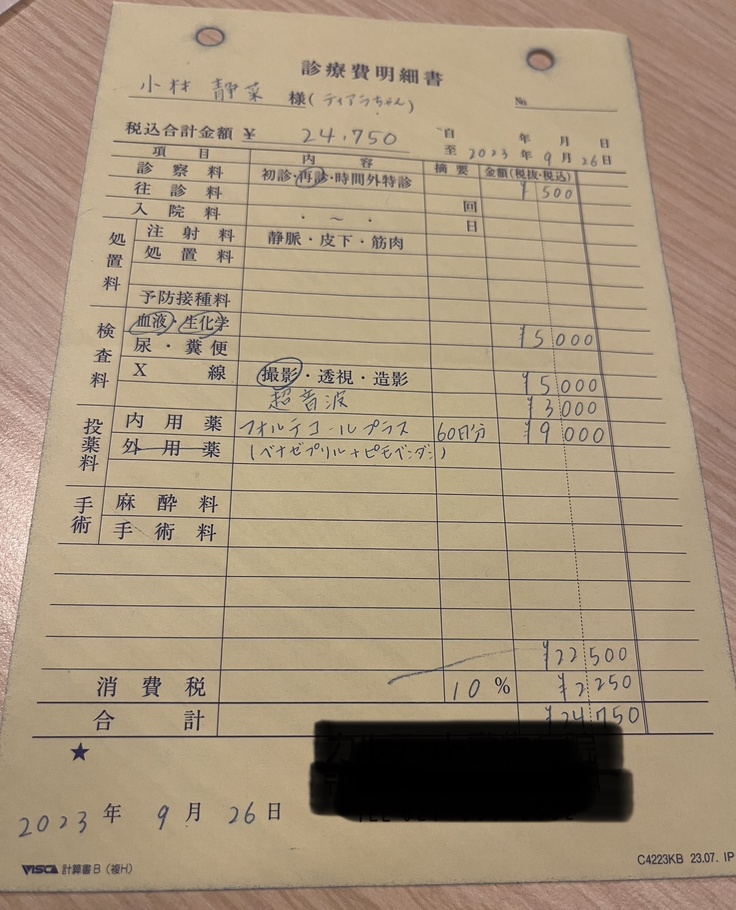 診療費明細書
小林 静菜 様(ティアラちゃん) №
税込合計金額 ¥ 24,750 自 年 月 日
至 2023 年 9 月 26 日
項 目 内 容 摘 要 金額(税抜・税込)
診 察 料 初診・再診・時間外特診 ¥500
往 診 料 回
入 院 料 ・ ~ ・ 日
処置料 注 射 料 静脈・皮下・筋肉
処 置 料
予防接種料
検査料 血液・生化学 ¥5000
尿・糞便
X 線 撮影・透視・造影 ¥5000
超音波 ¥3000
投薬料 内 用 薬 フォルテコールプラス 60日分 ¥9000
外 用 薬 (ベナゼプリル+ピモベンダン)
手術 麻 酔 料
手 術 料
¥22500
消 費 税 10% ¥2250
合 計 ¥24750
★
2023 年 9 月 26 日
VISCA 計算書B(複H) C4223KB 23.07. IP